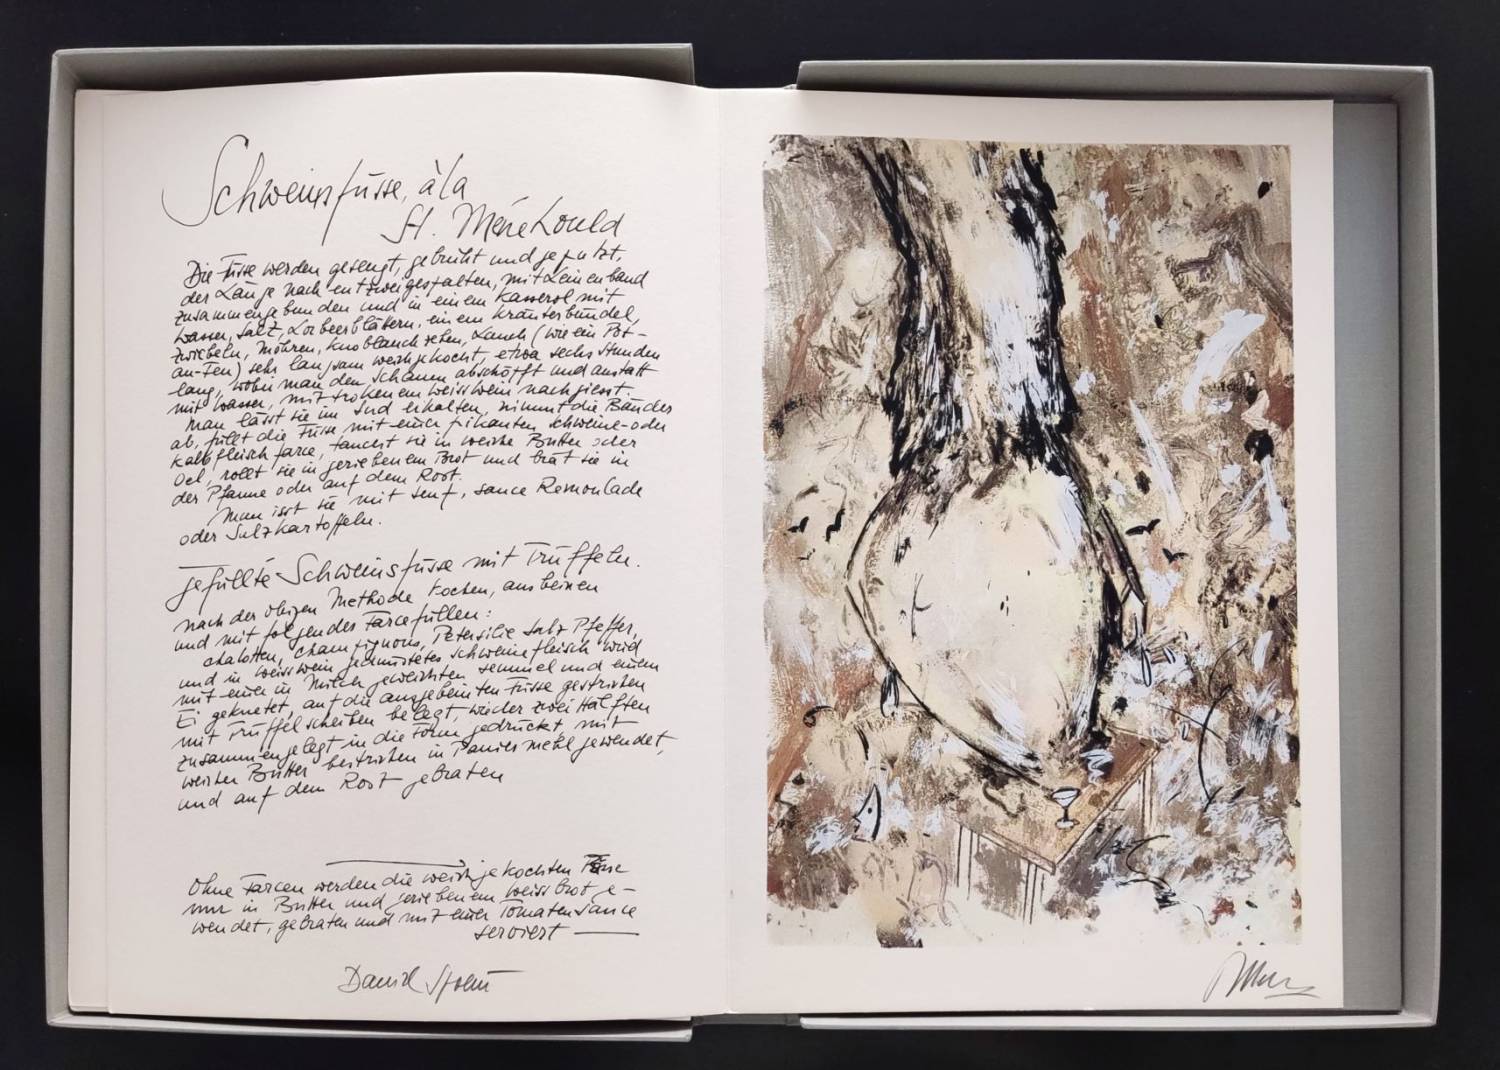 Schweinsfüsse, à la
St. Ménehould
Die Füsse werden gesengt, gebrüht und geputzt,
der Länge nach entzweigespalten, mit Leinenband
zusammengebunden und in einem Kasserol mit
Wasser, Salz, Lorbeerblättern, einem Kräuterbündel,
Zwiebeln, Möhren, Knoblauchzehen, Lauch (wie ein Pot-
au-Feu) sehr langsam weichgekocht, etwa sechs Stunden
lang, wobei man den Schaum abschöpft und anstatt
mit Wasser, mit trokenem Weisswein nachgiesst.
Man lässt sie im Sud erkalten, nimmt die Bänder
ab, füllt die Füsse mit einer pikanten Schweine- oder
Kalbfleisch farce, taucht sie in weiche Butter oder
Oel, rollt sie in geriebenem Brot und brät sie in
der Pfanne oder auf dem Rost.
Man isst sie mit Senf, Sauce Remoulade
oder Salzkartoffeln.
gefüllte Schweinsfüsse mit Trüffeln.
nach der obigen Methode kochen, ausbeinen
und mit folgender Farce füllen:
Chalotten, Champignons, Petersilie Salz Pfeffer,
und in Weisswein gedünstetes Schweinefleisch wird
mit einer in Milch geweichten Semmel und einem
Ei geknetet, auf die ausgebeinten Füsse gestrichen
mit Trüffelscheiben belegt, wieder zwei Hälften
zusammengelegt in die Form gedrückt, mit
weicher Butter bestrichen in Paniermehl gewendet,
und auf dem Rost gebraten
Ohne Farcen werden die weichgekochten Füsse
nur in Butter und geriebenem Weissbrot ge-
wendet, gebraten und mit einer Tomatensauce
serviert
Daniel Spoerri